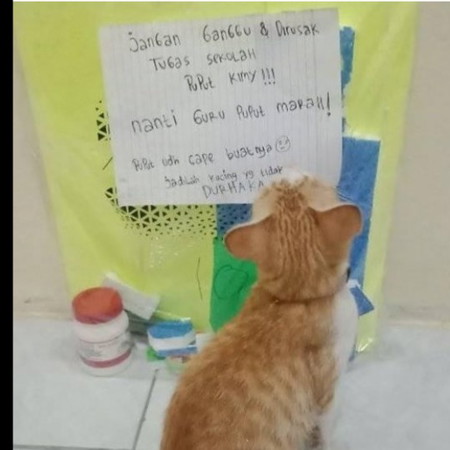 jangan Ganggu & Dirusak
Tugas sekolah
Puput kimy!!!
nanti Guru Puput marah!
Puput udh cape buatnya
jadilah kucing yg tidak
DURHAKA